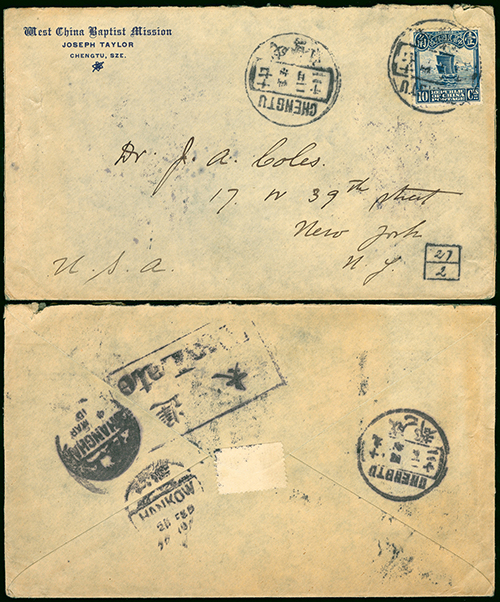 West China Baptist Mission
JOSEPH TAYLOR
CHENGTU, SZE.
CHENGTU
10 Cts
REPUBLIC
OF CHINA
Dr. J. A. Coles.
17 W 39th street
New York
N. Y.
U. S. A.
27
2
Too Late
遲
太
SHANGHAI
MAR
HANKOW
CHENGTU